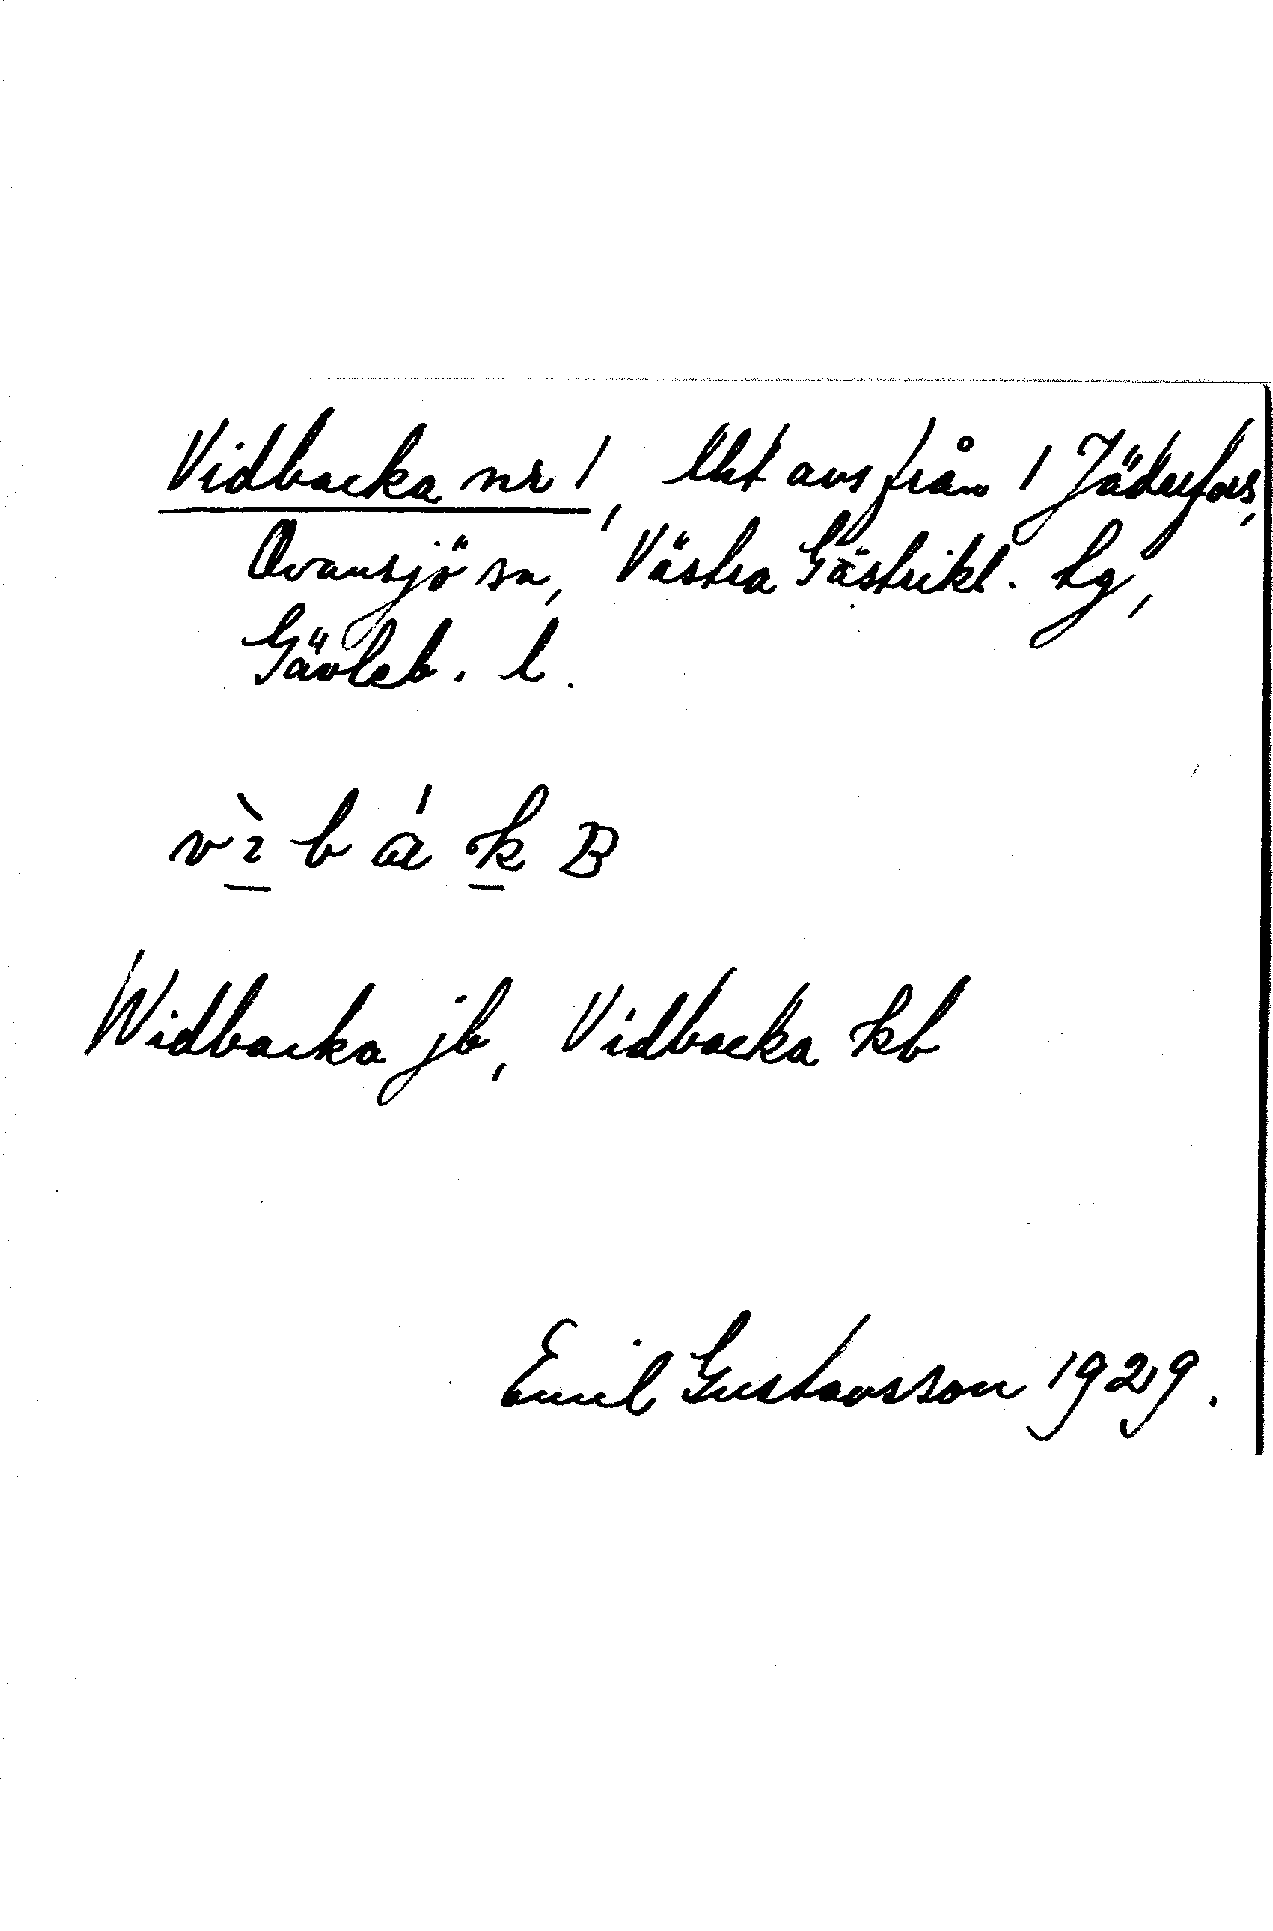 Vidbacka nr 1, lht avs från 1 Jäderfors,
Ovansjö sn, Västra Gästrikl. tg,
Gävleb. l.
vìbákB
Widbacka jb, Vidbacka kb
Emil Gustavsson 1929.